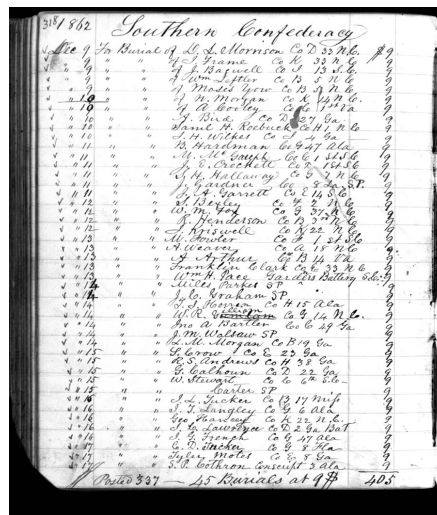 318 1862 Southern Confederacy
Dec 9 For Burial of D. L. Morrison Co D 33 N.C. $9
" 9 " " of I. Frame Co K 33 N.C. 9
" 9 " " of J. Bagwell Co I 13 S.C. 9
" 9 " " of Wm Co B 5 N.C. 9
" 9 " " of Moses Yow Co B 5 N.C. 9
" 10 " " of N. Morgan Co K 14 N.C. 9
" 10 " " of A Corley Co 9
" 10 " " J. Bird Co D 27 Ga 9
" 10 " " Saml H. Roebuck Co H 1 N.C. 9
" 11 " " J. H. Wilkes Co Ga 9
" 11 " " B. Hardman Co G 47 Ala 9
" 11 " " M. McGaugh Co C 1st S.C. 9
" 11 " " J. E. Crockett Co 1st S.C. 9
" 11 " " G. H. Hallaway Co G 7 N.C. 9
" 11 " " J. Gardner Co 8 S.P. 9
" 11 " " J. A. Garrett Co E 14 S.C. 9
" 12 " " S. Bexley Co N.C. 9
" 12 " " W. M. Fox Co G 37 N.C. 9
" 12 " " Henderson Co B 3rd N.C. 9
" 12 " " S. Kriswell Co K 22 N.C. 9
" 13 " " M. Fowler Co 1st S.C. 9
" 13 " " A. Weaver Co A 18 N.C. 9
" 13 " " A Arthur Co B 14 9
" 13 " " Franklyn Clark Co E 33 N.C. 9
" 13 " " Wm H. Pace Battery 9
" 14 " " Miles Parks SP 9
" 14 " " J. C. Graham SP 9
" 14 " " T. J. Co H 15 Ala 9
" 14 " " W. R. G Co G 14 N.C. 9
" 14 " " Jno A Bartlett Co C 49 Ga 9
" 14 " " J. M. Watson SP 9
" 14 " " L. M. Morgan Co B 19 Ga 9
" 15 " " S. Crow Co E 23 Ga 9
" 15 " " R. S. Andrews Co H 38 Ga 9
" 15 " " G. Calhoun Co D 22 Ga 9
" 15 " " W. Stewart Co C 6th S.C. 9
" 15 " " Carter SP 9
" 15 " " J. L. Tucker Co B 17 Miss 9
" 16 " " J. J. Langley Co G 6 Ala 9
" 16 " " Geo Harvey Co K 22 N.C. 9
" 16 " " J. C. Lawrence Co D 2 Ga Bat 9
" 16 " " J. G. French Co G 47 Ala 9
" 17 " " E. D. Tucker Co G 8 9
" 17 " " Tyler Motes Co E 8 Ga 9
" 17 " " S. P. Cothron Conscript 3 Ala 9
Posted 337 — 45 Burials at 9$ 405